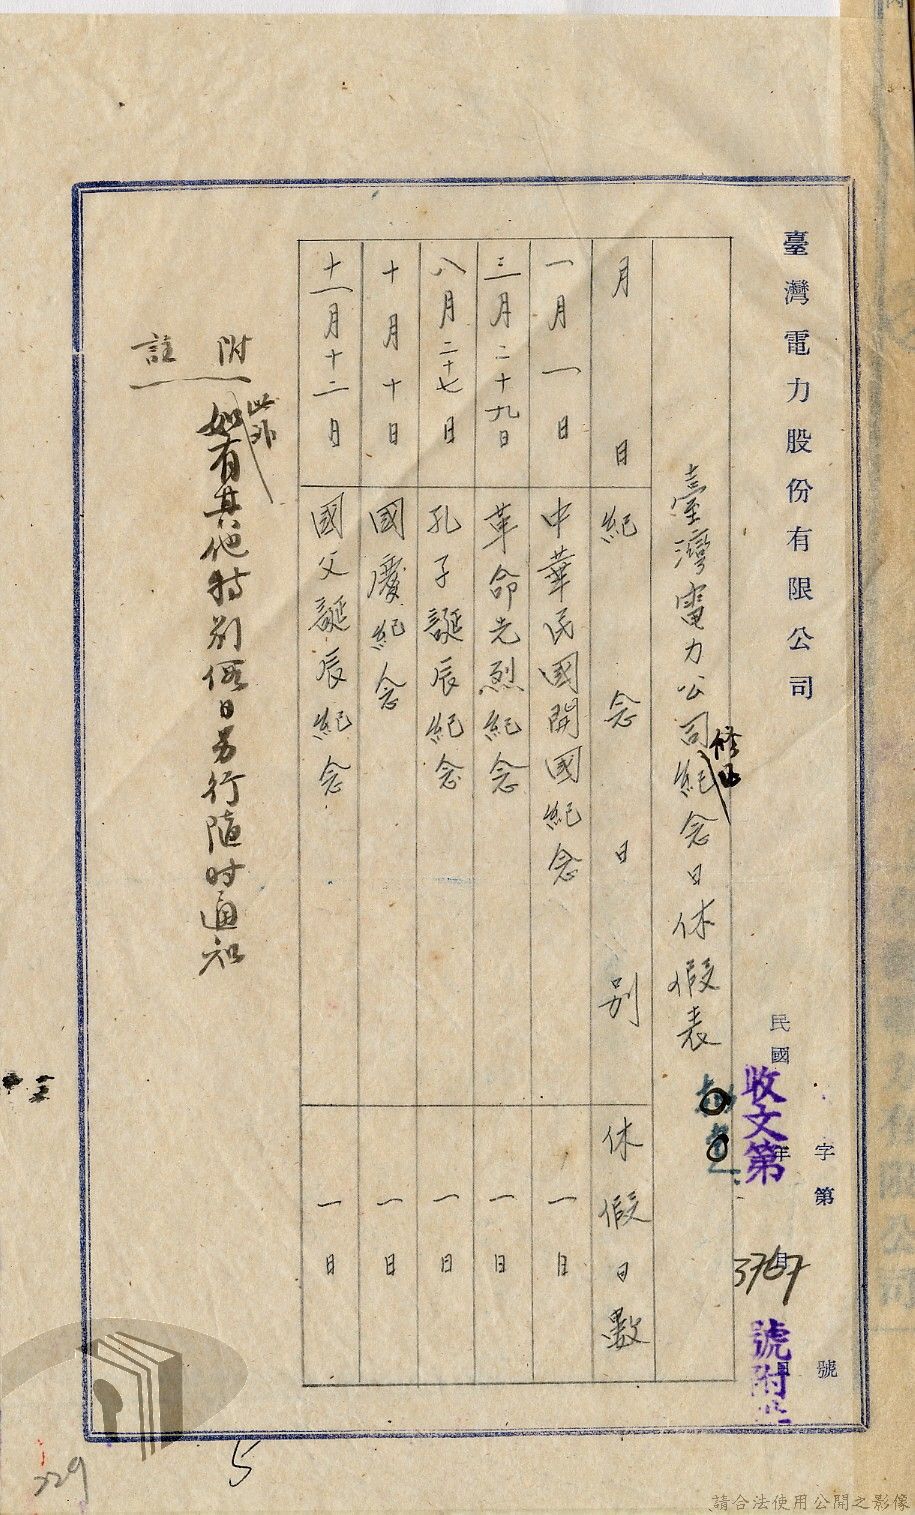 臺灣電力股份有限公司
民國 年 月
字第 號
收文第 3767 號附
臺灣電力公司修正紀念日休假表
月日 紀念日別 休假日數
一月一日 中華民國開國紀念 一日
三月二十九日 革命先烈紀念 一日
八月二十七日 孔子誕辰紀念 一日
十月十日 國慶紀念 一日
十一月十二日 國父誕辰紀念 一日
附註
此外如有其他特別假日另行隨时通知
5
229
請合法使用公開之影像